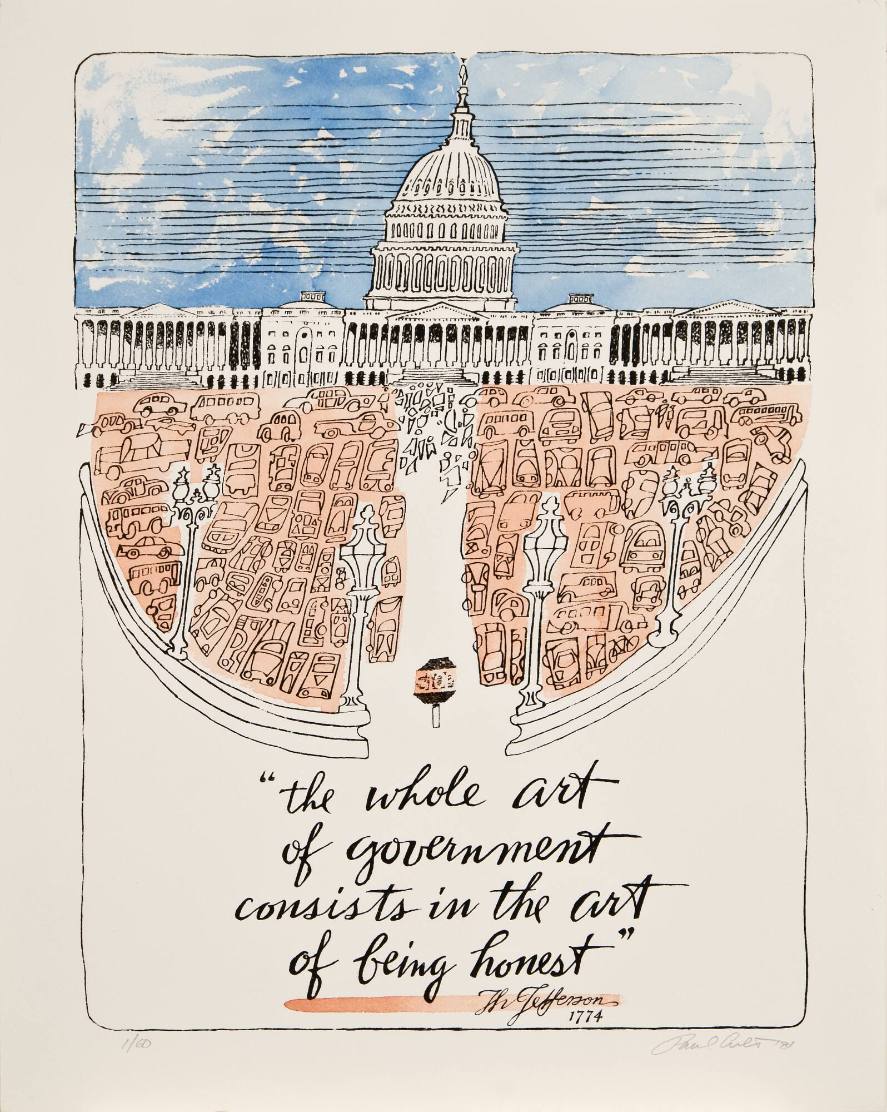 "the whole art
of government
consists in the art
of being honest"
Th Jefferson
1774
1/60